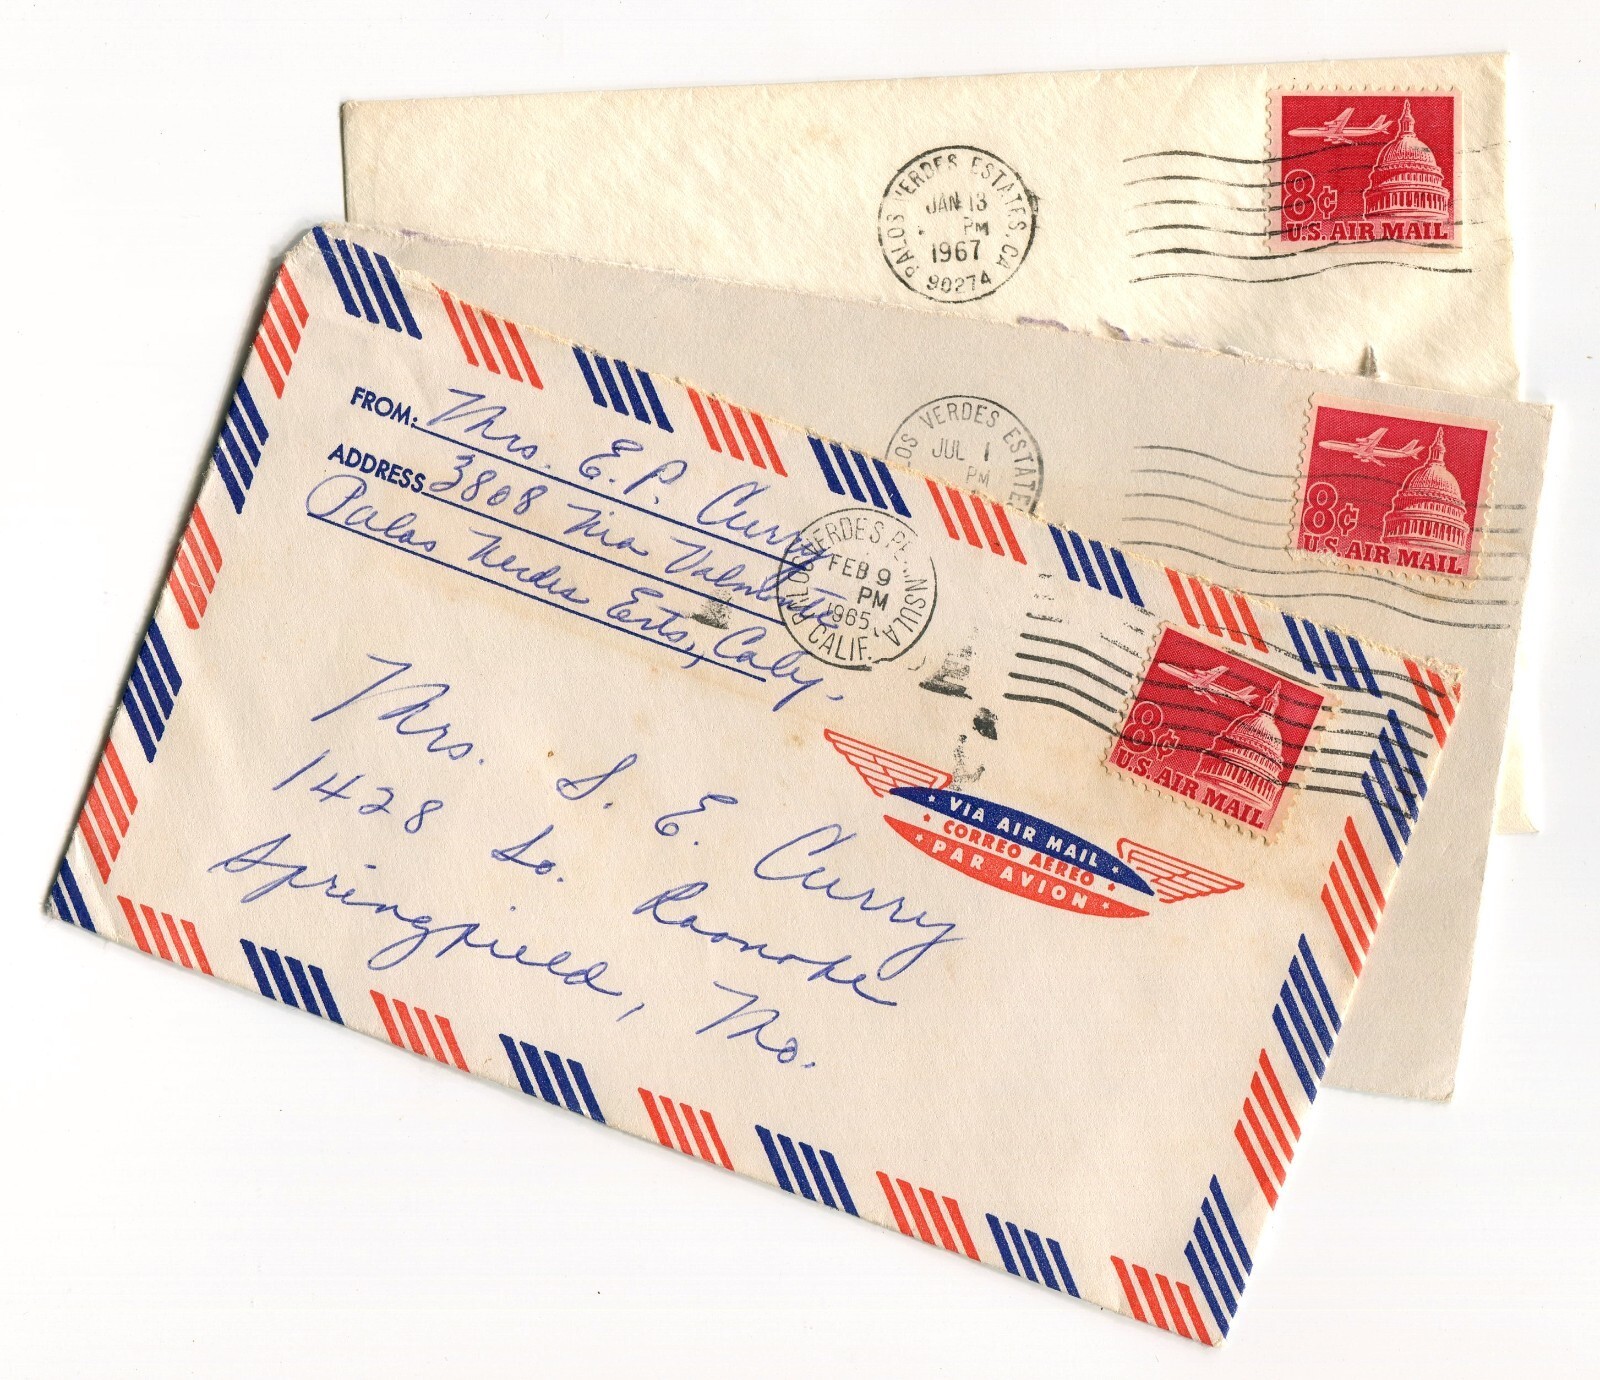 PALOS VERDES ESTATES, CA
JAN 13
PM
1967
90274
8¢
U.S. AIR MAIL
OS VERDES ESTATE
JUL 1
PM
8¢
U.S. AIR MAIL
FROM: Mrs. E. P. Curry
ADDRESS 3808 Via Valmonte
Palos Verdes Ests., Calif.
PALOS VERDES PENINSULA
FEB 9
PM
1965
CALIF.
8¢
U.S. AIR MAIL
VIA AIR MAIL
CORREO AEREO
PAR AVION
Mrs. S. E. Curry
1428 So. Roanoke
Springfield, Mo.